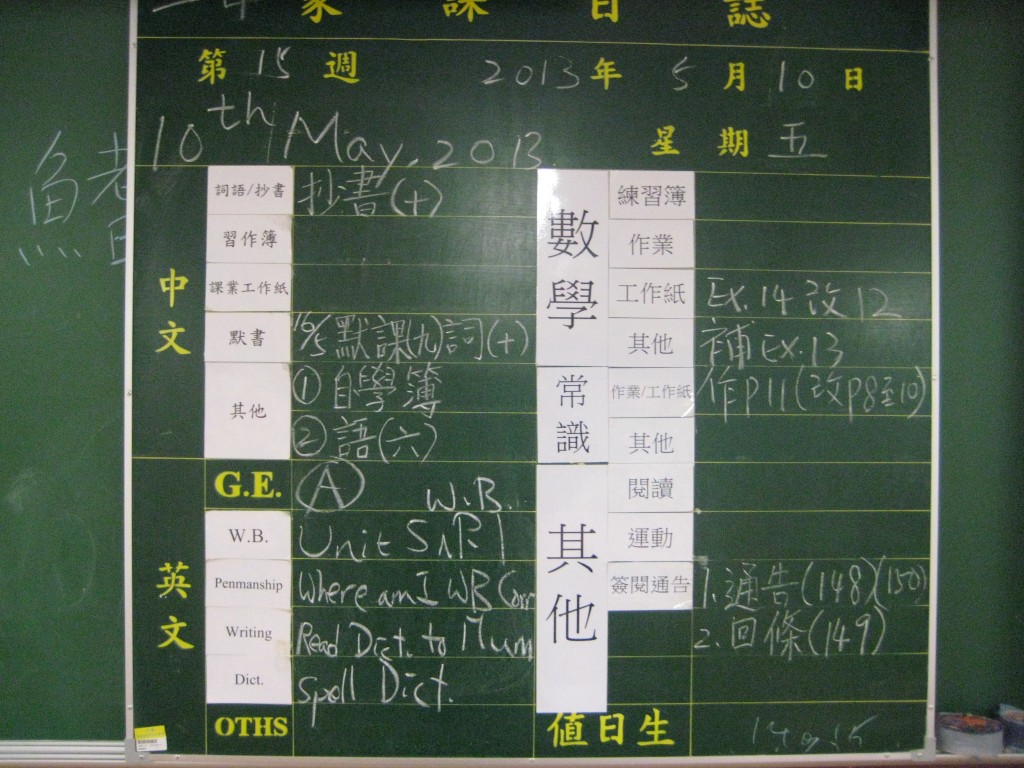 家 課 日 誌
第 15 週 2013年 5月10日
10th May, 2013. 星期五
中文
詞語/抄書 抄書(十)
習作簿
課業工作紙
默書 16/5 默課(九)詞(十)
其他 ① 自學簿
② 語(六)
英文
G.E. Ⓐ W.B.
W.B. Unit 5
Penmanship Where am I WB Corr
Writing Read Dict. to Mum
Dict. Spell Dict.
OTHS
數學
練習簿
作業
工作紙 Ex.14 改12
其他 補Ex.13
常識
作業/工作紙 作P11(改P8至10)
其他
其他
閱讀
運動
簽閱通告 1. 通告(148)(150)
2. 回條(149)
值日生
魚